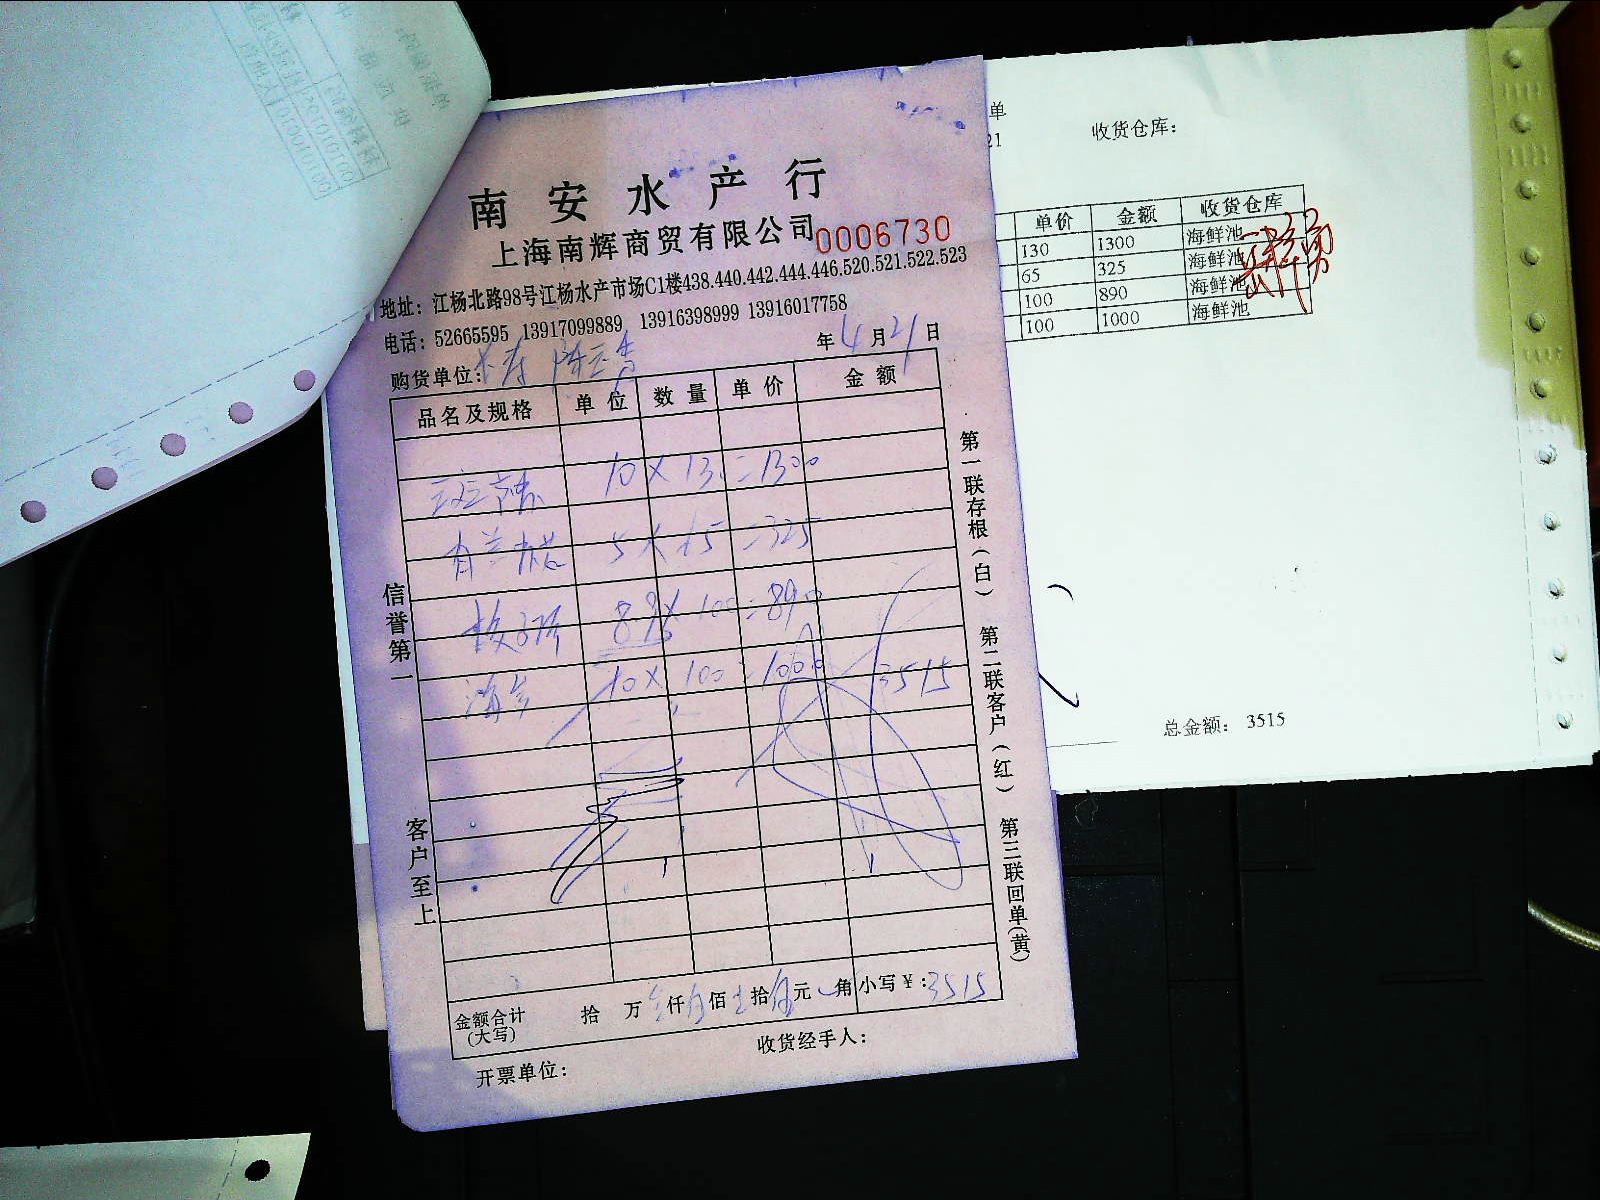 南安水产行
上海南辉商贸有限公司 0006730
地址：江杨北路98号江杨水产市场C1楼438.440.442.444.446.520.521.522.523
电话：52665595 13917099889 13916398999 13916017758
年4月21日
购货单位：
品名及规格 单位 数量 单价 金额
10×130=1300
5×65=325
8.9×100=890
10×100=1000 3515
金额合计(大写) 拾 万 叁仟伍佰壹拾伍元 角 小写￥：3515
开票单位： 收货经手人：
信誉第一 客户至上
第一联存根(白) 第二联客户(红) 第三联回单(黄)
单
21
收货仓库：
单价 金额 收货仓库
130 1300 海鲜池
65 325 海鲜池
100 890 海鲜池
100 1000 海鲜池
总金额： 3515